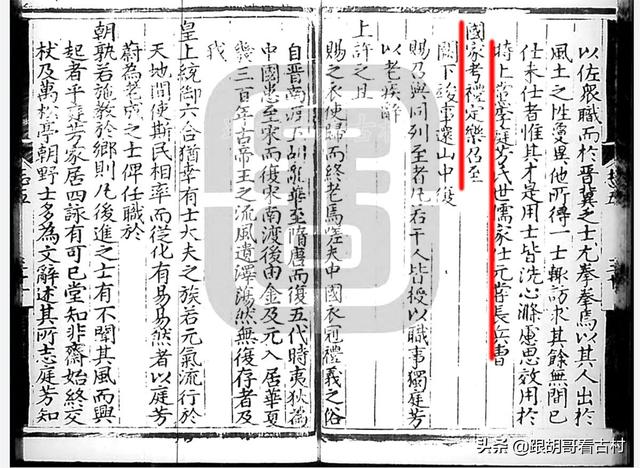 以佐衆職而於晉冀之士尤拳拳焉以其人出於
風土之性愛異他所得一士輙訪求其餘無間已
仕未仕者惟其才是用士皆洗心滌慮思效用於
時上黨李庭芳氏世儒家仕元嘗長兵曹
國家考禮定樂召至
闕下竣事還山中復
賜召與同列至者凡若干人皆授以職事獨庭芳
以老疾辭
上許之且
賜之衣使歸而終老焉嗟夫中國衣冠禮義之俗
自晉南渡胡亂華至隋唐而復五代時夷狄為
中國患至宋而復宋南渡後由金及元入居華夏
幾三百年古帝王之流風遺澤蕩然無復存者及
我
皇上統御六合猶幸有士大夫之族若元氣流行於
天地間使斯民相率而從化有易易然者以庭芳
蔚為老成之士俾任職於
朝孰若施教於鄉則凡後進之士有不聞其風而興
起者乎庭芳家居四詠有可已堂知非齋始終交
杖及萬松亭朝野士多為文辭述其所志庭芳知
头条 @跟胡哥看古村